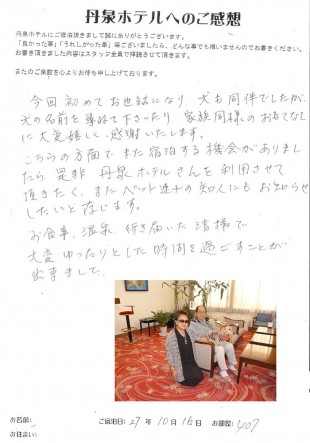 丹泉ホテルへのご感想
丹泉ホテルにご宿泊頂きまして誠にありがとうございます。
「良かった事」「うれしかった事」等ございましたら、どんな事でも構いませんのでお書きください。
お書き頂きました内容はスタッフ全員で拝読させて頂きます。
またのご来館を心よりお待ち申し上げております。
今回初めてお世話になり、犬も同伴でしたが、
犬の名前を尋ねて下さったり、家族同様のおもてなし
に大変嬉しく、感謝いたします。
こちらの方面でまた宿泊する機会がありまし
たら是非 丹泉ホテルさんを利用させて
頂きたく、またペット連れの知人にもお知らせ
したいと存じます。
お食事、温泉、行き届いた清掃で
大変ゆったりとした時間を過ごすことが
出来ました。
お名前:
ご宿泊日: 27年 10月 16日 お部屋: 407
お住まい: